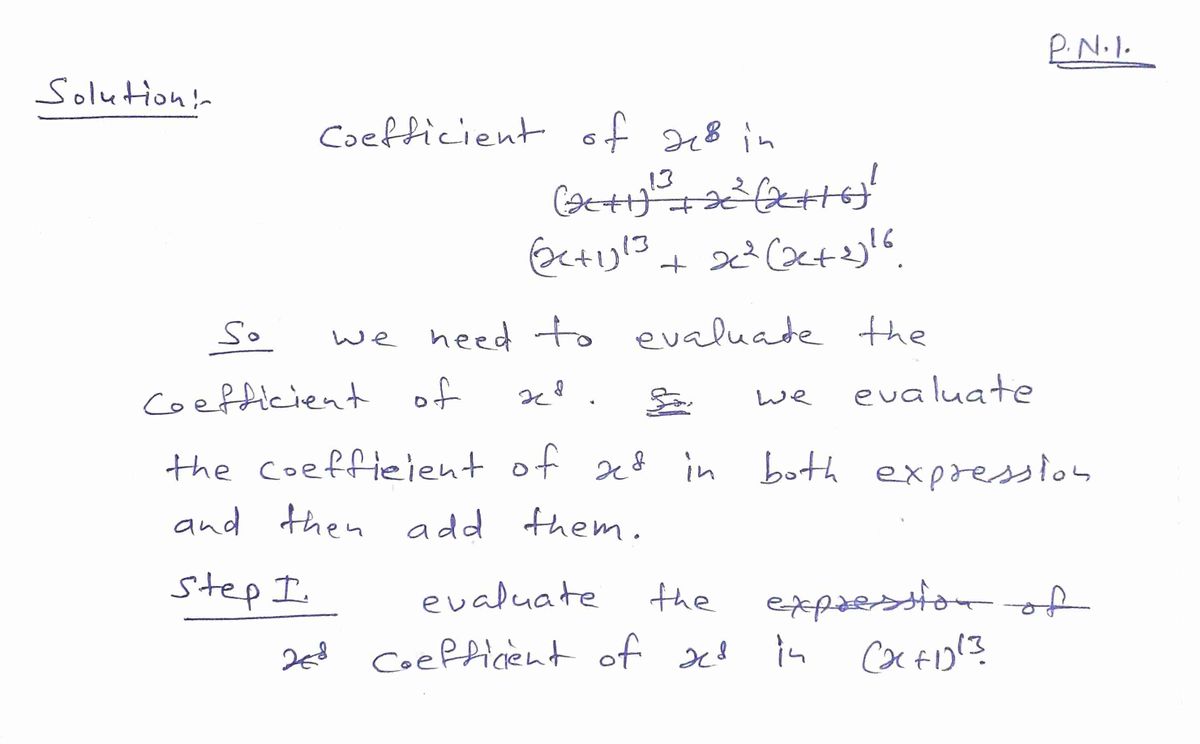 P.N.1.
Solution:-
Coefficient of x⁸ in
(x+1)¹³ + x²(x+16)¹
(x+1)¹³ + x²(x+2)¹⁶.
So we need to evaluate the
coefficient of x⁸. So, we evaluate
the coefficient of x⁸ in both expression
and then add them.
Step I. evaluate the expression of
x⁸ coefficient of x⁸ in (x+1)¹³.